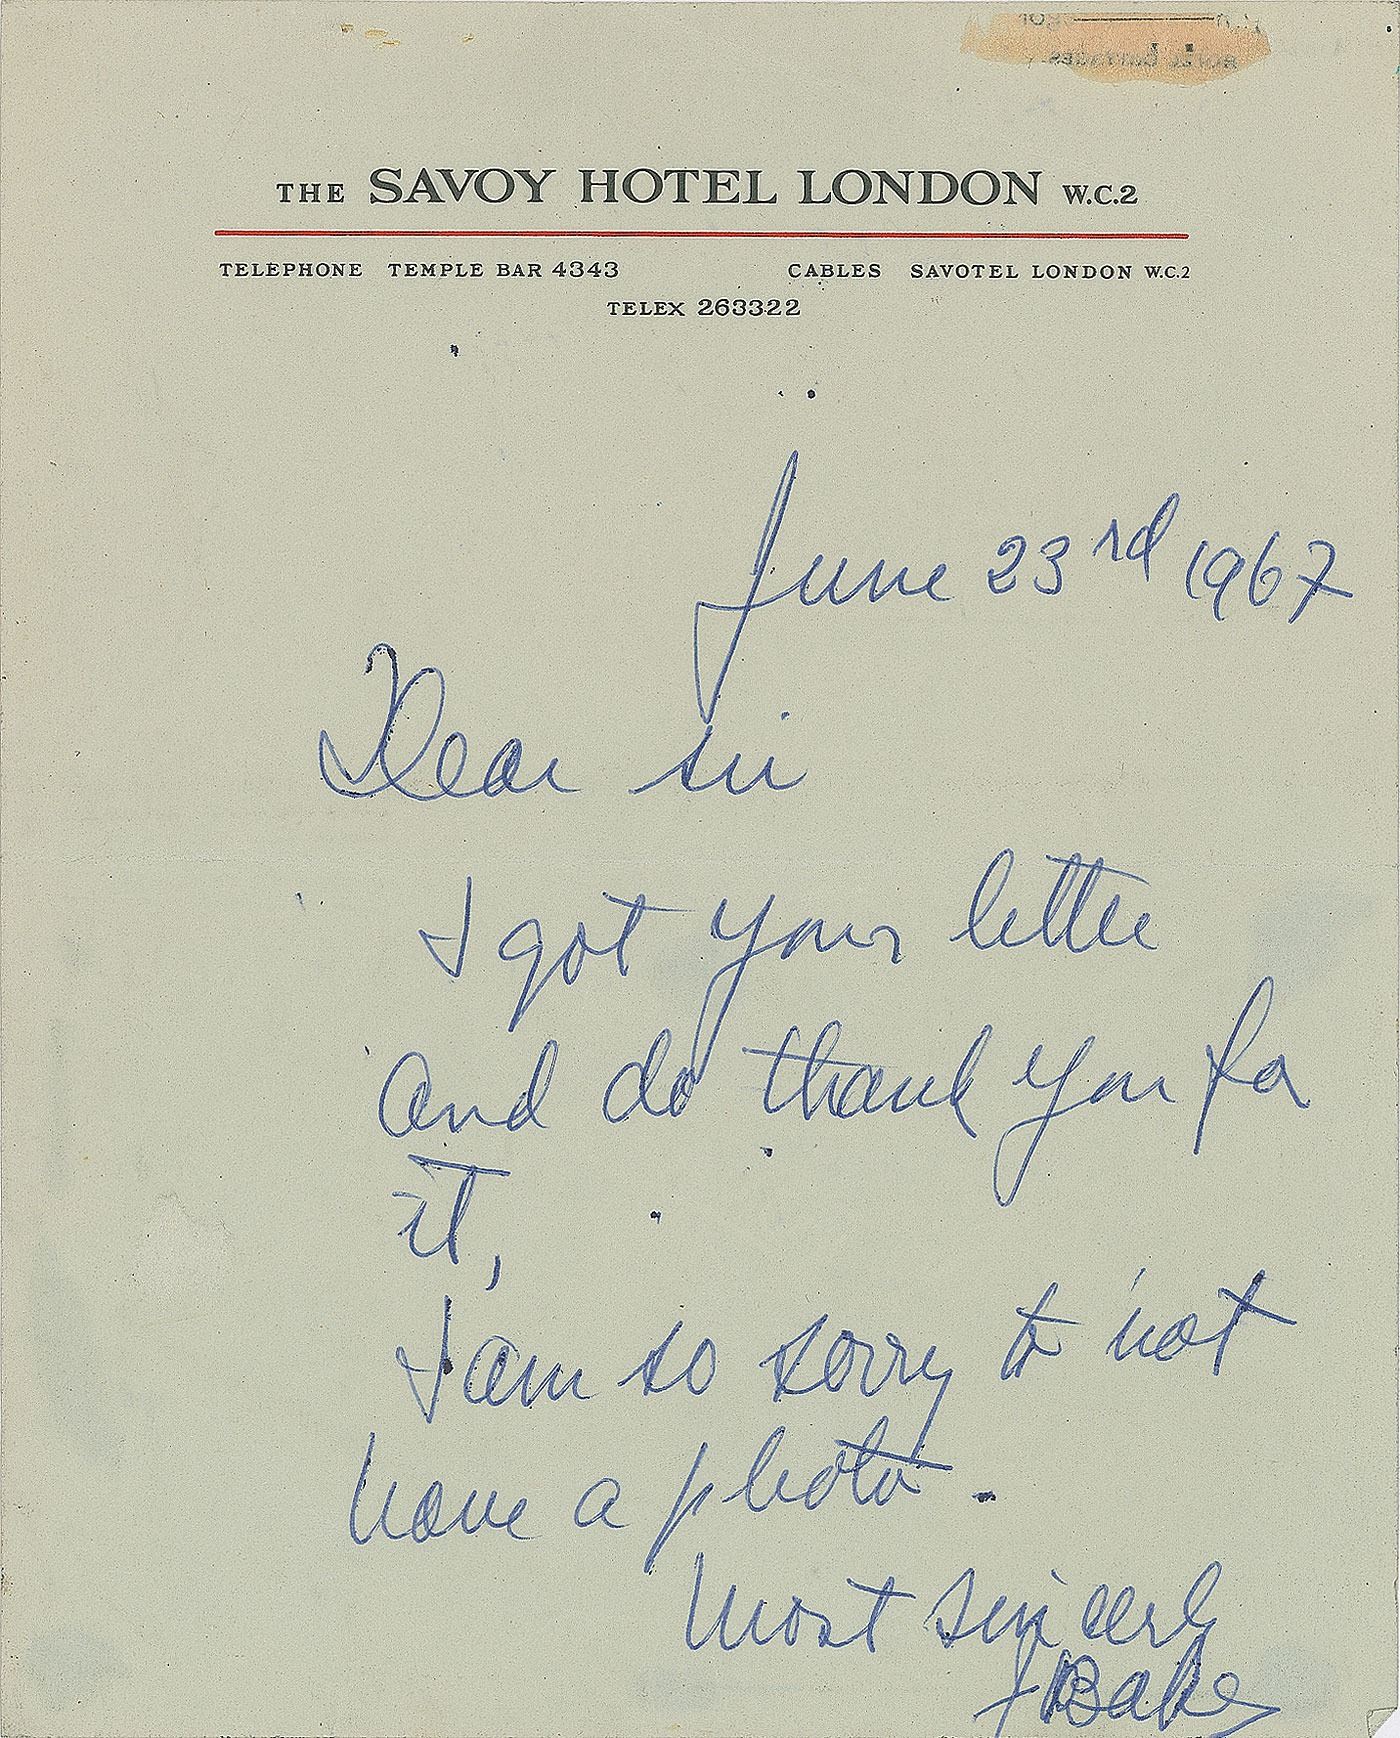 THE SAVOY HOTEL LONDON W.C.2
TELEPHONE TEMPLE BAR 4343 CABLES SAVOTEL LONDON W.C.2
TELEX 263322
June 23rd 1967
Dear sir
I got your letter
and do thank you for
it,
I am so sorry to not
have a photo.
Most sincerly
J Baker